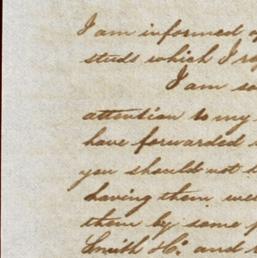 I am informed of
studs which I re
I am so
attention to my
have forwarded
you should not
having them we
them by some p
Smith & Co. and